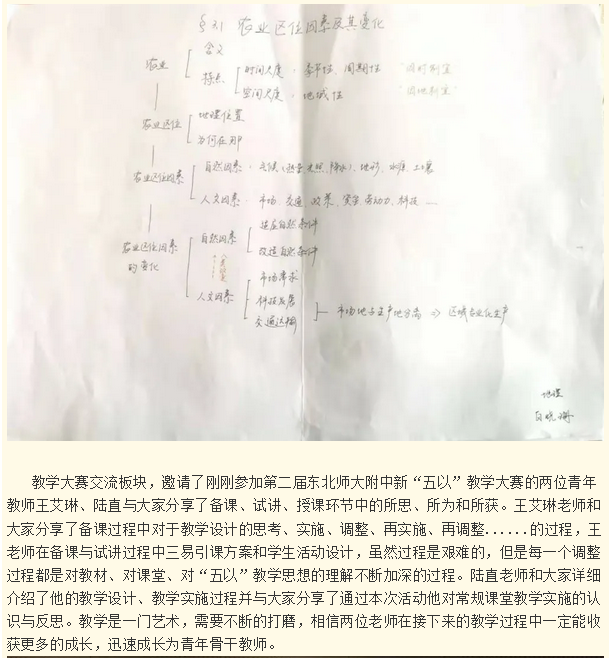 §3.1 农业区位因素及其变化
农业
含义
特点
时间尺度：季节性、周期性 “因时制宜”
空间尺度：地域性 “因地制宜”
农业区位
地理位置
为何在用
农业区位因素
自然因素：气候（热量、光照、降水）、地形、水源、土壤
人文因素：市场、交通、政策、劳动力、科技……
农业区位因素
的变化
自然因素
适应自然条件
改造自然条件
人文因素
市场需求
科技发展
交通运输
市场地与生产地分离 ⇒ 区域专业化生产
地理
教学大赛交流板块，邀请了刚刚参加第二届东北师大附中新“五以”教学大赛的两位青年
教师王艾琳、陆直与大家分享了备课、试讲、授课环节中的所思、所为和所获。王艾琳老师和
大家分享了备课过程中对于教学设计的思考、实施、调整、再实施、再调整......的过程，王
老师在备课与试讲过程中三易引课方案和学生活动设计，虽然过程是艰难的，但是每一个调整
过程都是对教材、对课堂、对“五以”教学思想的理解不断加深的过程。陆直老师和大家详细
介绍了他的教学设计、教学实施过程并与大家分享了通过本次活动他对常规课堂教学实施的认
识与反思。教学是一门艺术，需要不断的打磨，相信两位老师在接下来的教学过程中一定能收
获更多的成长，迅速成长为青年骨干教师。